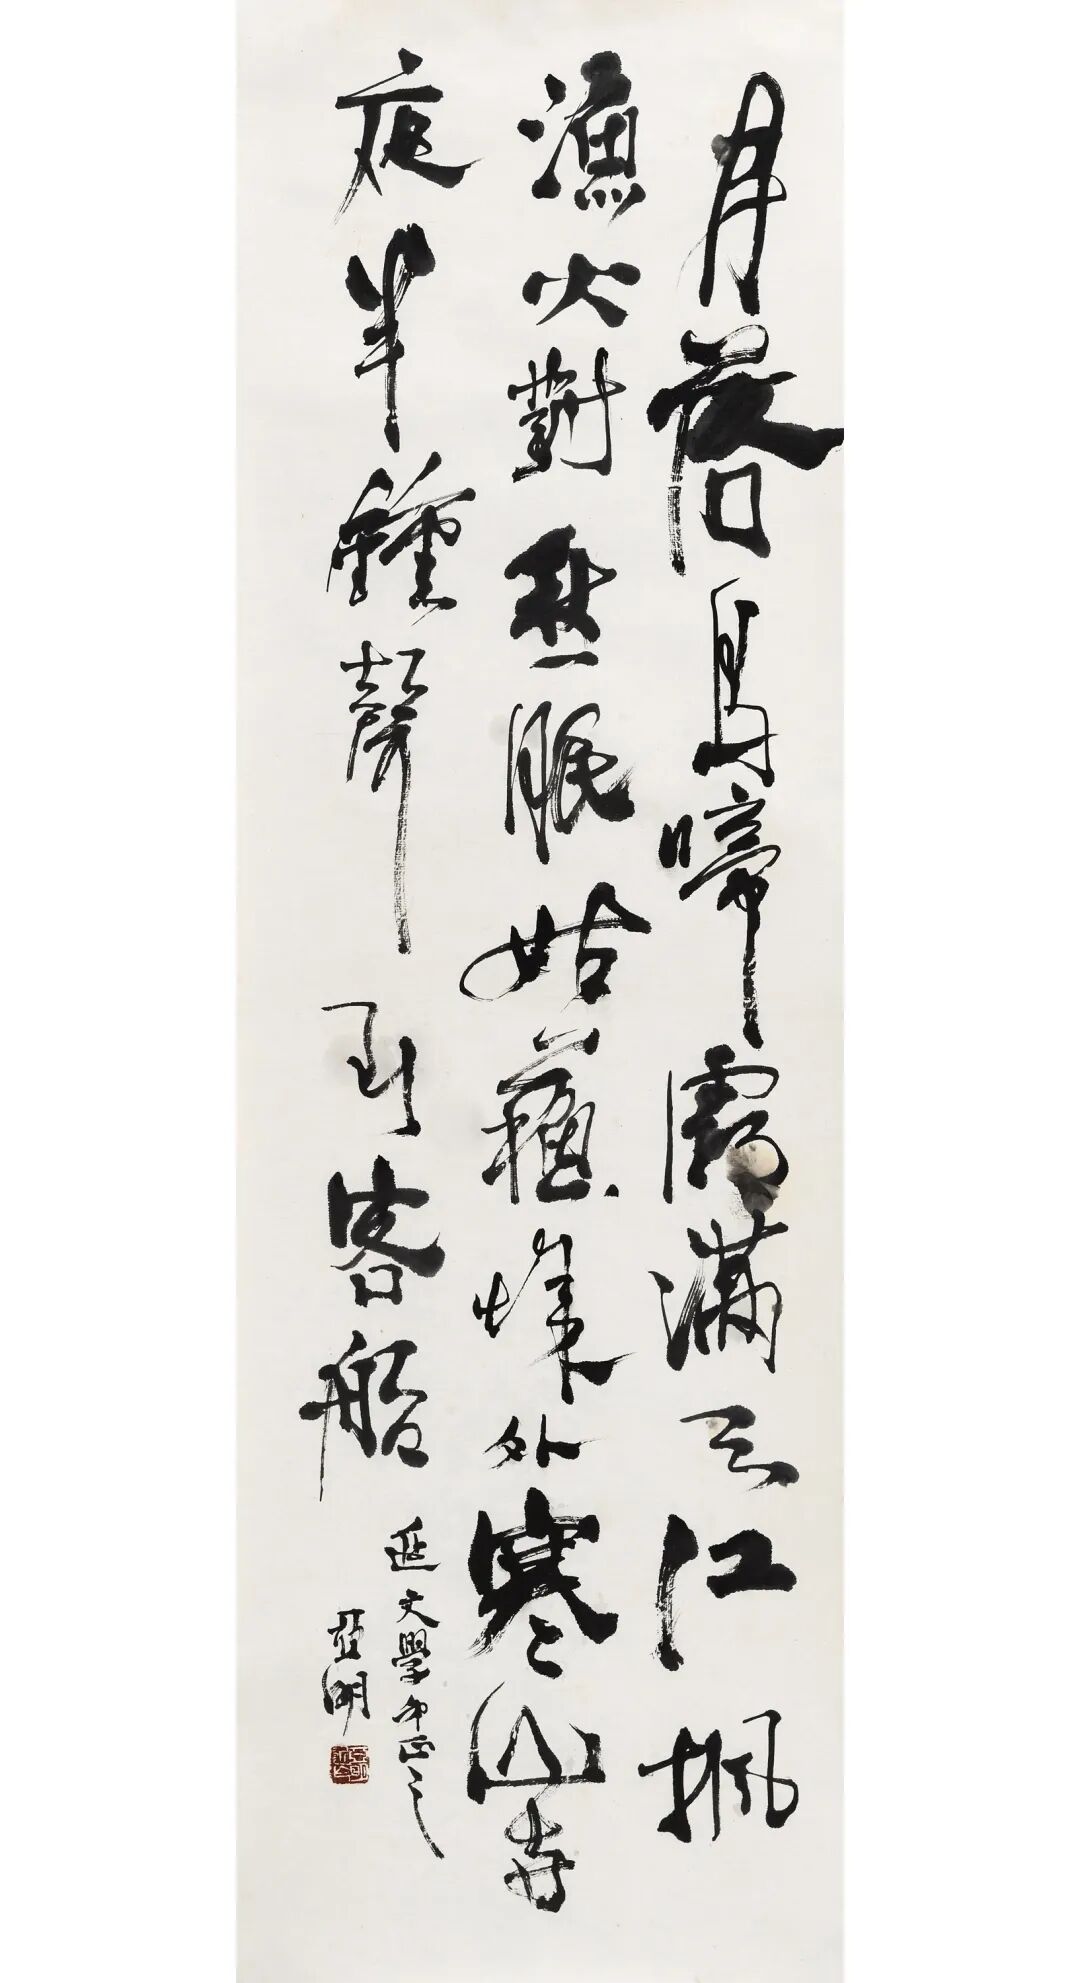 月落烏啼霜滿天江楓
漁火對愁眠姑蘇城外寒山寺
夜半鐘聲到客船
延文學弟正之
亞明